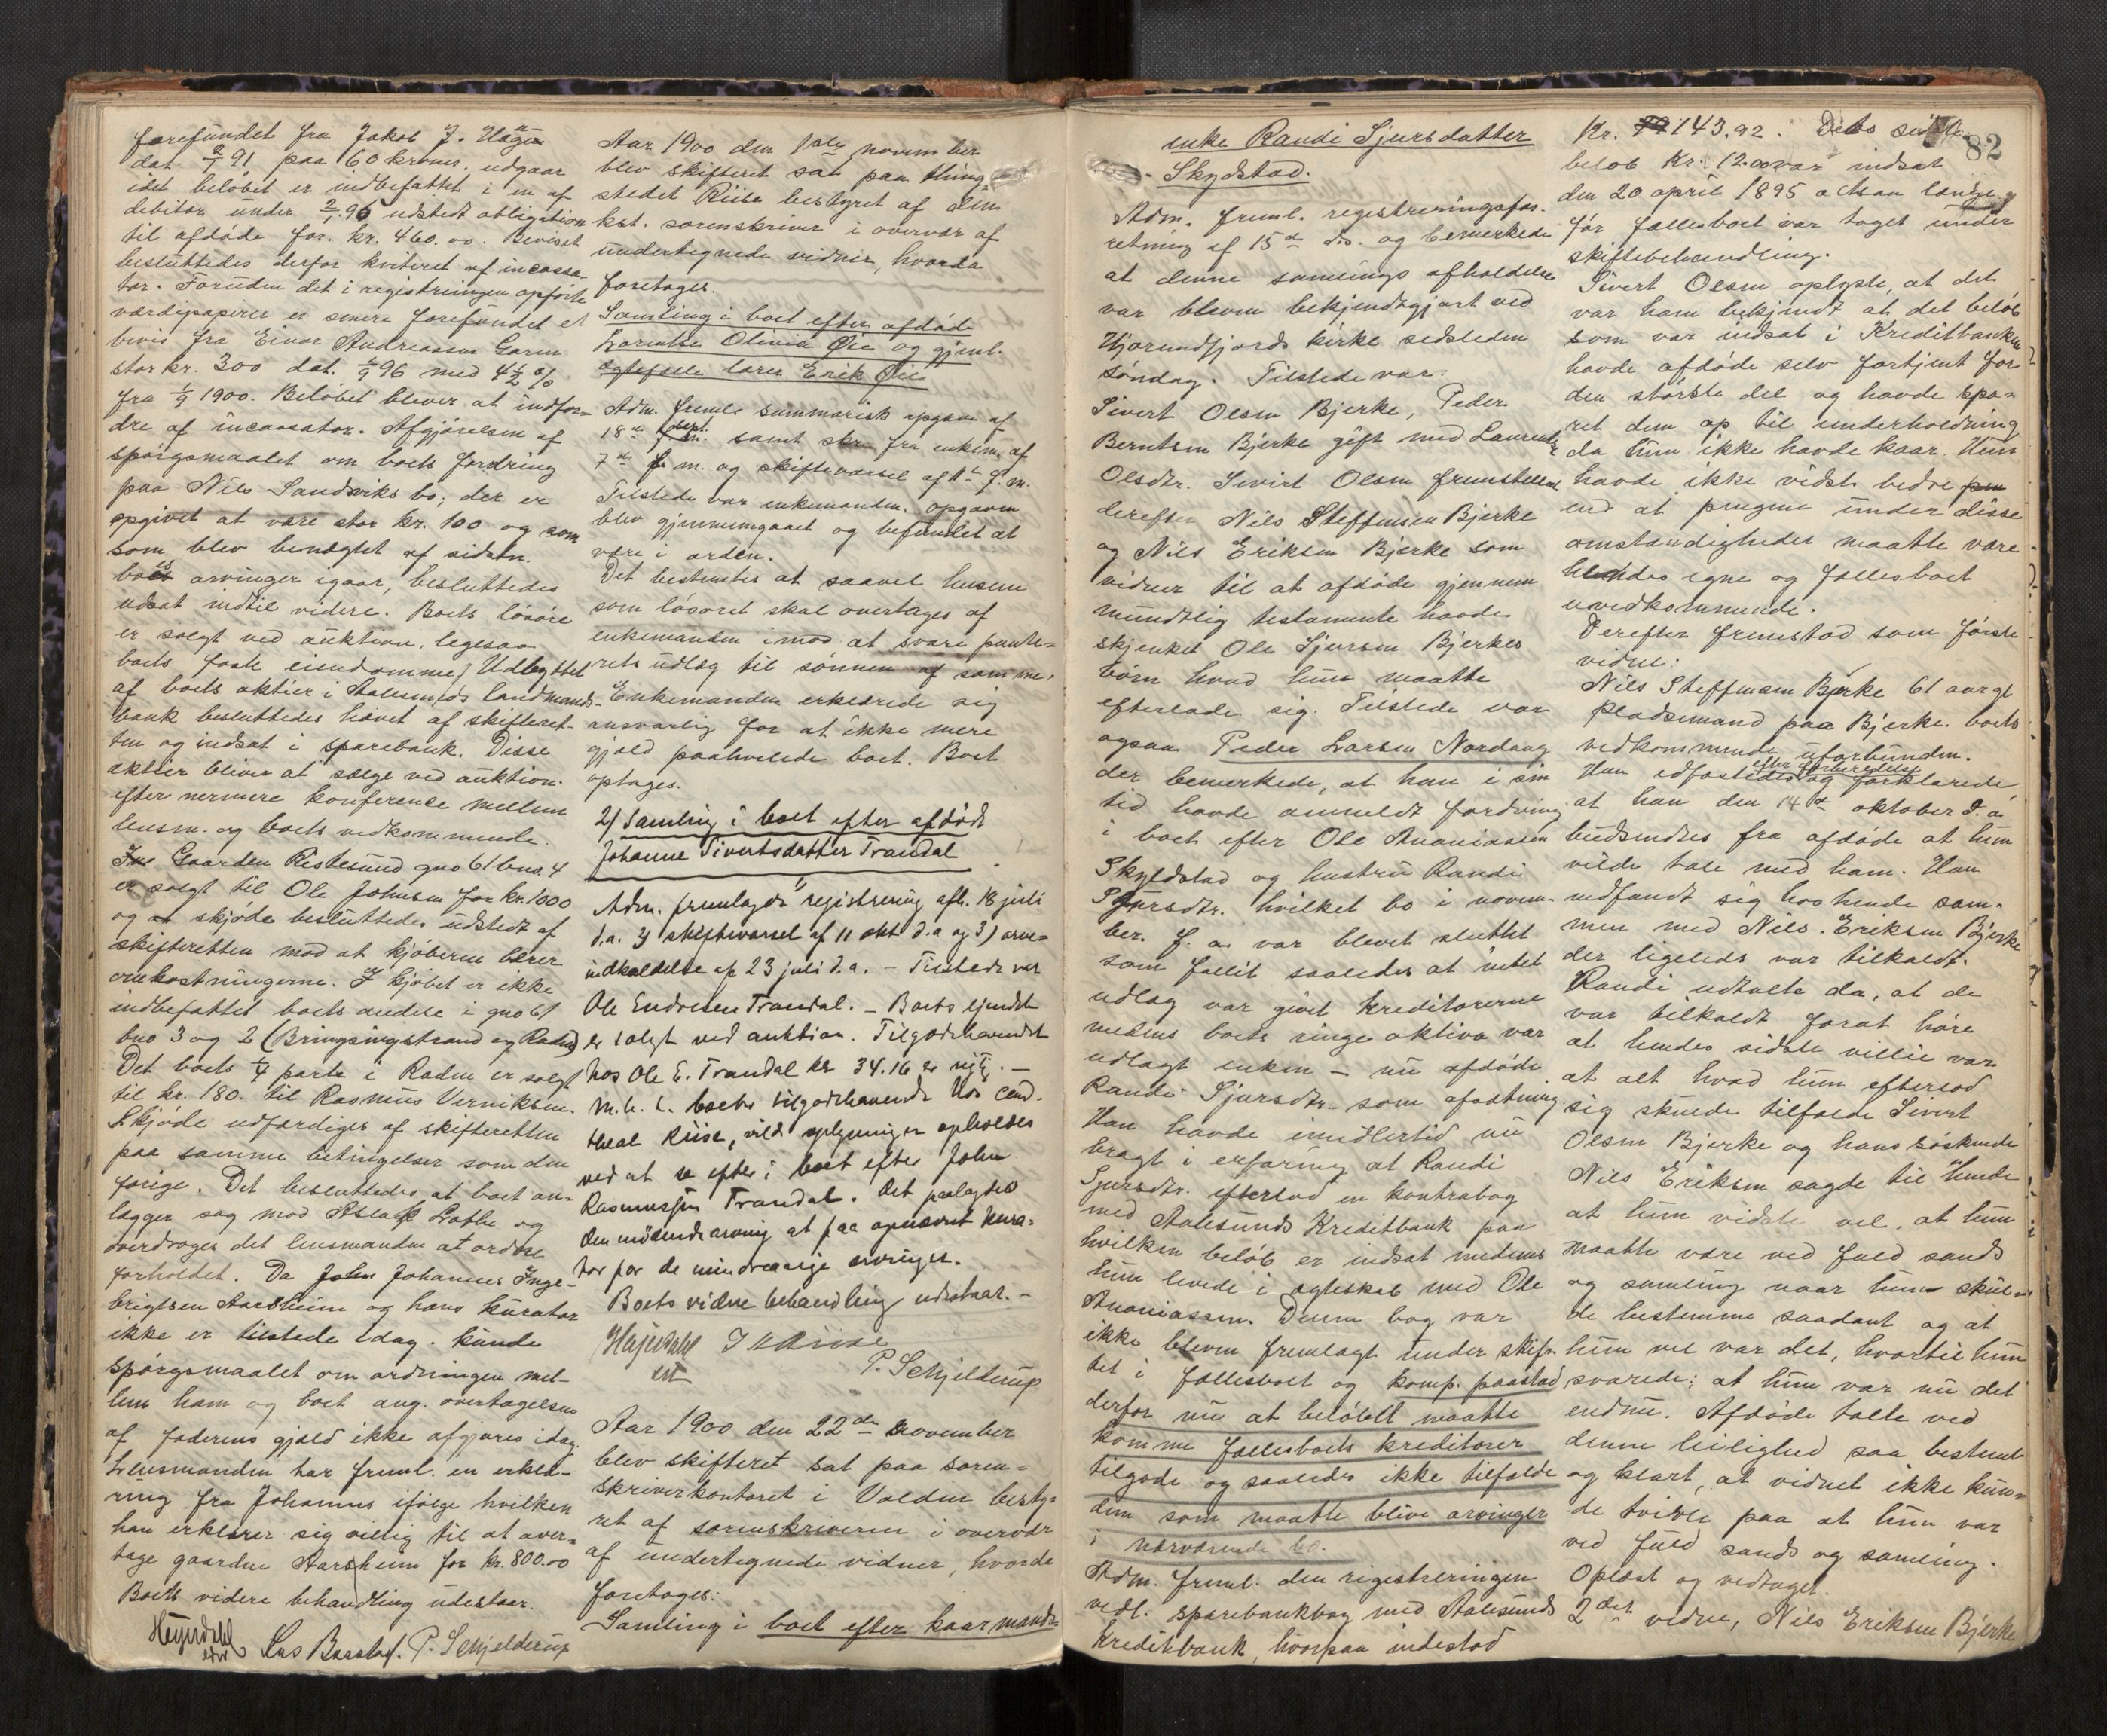 forefundet fra Jakob J. Hagen
dat. 2/7 91 paa 60 kroner. udgaar
idet beløbet er indbefattet i en af
debitor under 2/1 96 udstedt obligation
til afdøde for. kr. 460.00. Beviset
besluttedes derfor kviteret af incassa-
tor. Foruden det i registreringen opførte
værdipapirer er senere forefundet et
bevis fra Einar Andreassen Garen
stor kr. 300 dat. 1/9 96 med 4 1/2 %
fra 1/9 1900. Beløbet blever at indfor-
dre af incassator. Afgjørelsen af
spørgsmaalet om boets fordring
paa Nils Sandviks bo, der er
opgivet at være stor kr. 100 og som
som blev benægtet af sidstn.
boes arvinger igaar, besluttedes
udsat indtil videre. Boets løsøre
er solgt ved auktion, legesaa
boets faste eiendomme. Udbyttet
af boets aktier i Aalesunds landmands-
bank besluttedes hævet af skifteret-
ten og indsat i sparebank. Disse
aktier bliver at sælge ved auktion.
efter nermere konference mellem
lensm. og boets vedkommende.
Gaarden Ristesund gno 61 bno. 4
er solgt til Ole Johnsen for kr. 1000
og skjøde besluttedes udstedt af
skifteretten mod at kjøberen bærer
omkostningerne. I kjøbet er ikke
indbefattet boets andele i gno 61
bno 3 og 2 (Bringsingstrand og Raden)
Det boets 1/4 parte i Raden er solgt
til kr. 180. til Rasmus Verniksen.
Skjøde udfærdiges af skifteretten
paa samme betingelser som den
forige. Det besluttedes at boet an-
lægger sag mod Aslak Lothe og
overdroges det lensmanden at ordne
forholdet. Da Johannes Inge-
brigtsen Aarsheim og hans kurator
ikke er tilstede idag. kunde
spørgsmaalet om ordningen mel-
lem ham og boet ang. overtagelsen
af faderens gjæld ikke afgjøres idag.
Lensmanden har freml. en erklæ-
ring fra Johannes ifølge hvilken
han erklærer sig villig til at over-
tage gaarden Aarsheim for kr. 800.00
Boets videre behandling udestaar.
Høyerdahl Lars Barstad. P. Schjelderup
Aar 1900 den 1ste november
blev skifteret sat paa thing-
stedet Riise bestyret af den
kst. sorenskriver i overvær af
undertegnede vidner, hvorda
foretages.
Samling i boet efter afdøde
Olivia Øie og gjenl.
ægtefælle lærer Erik Øie
Adm. freml. summarisk opgave af
18de sept. samt skr. fra enkem. af
7de f. m. og skiftevarsel af 11te f. m.
Tilstede var enkemanden. opgaven
blev gjennemgaaet og befundet at
være i orden.
Det bestemtes at saavel husene
som løsøret skal overtages af
enkemanden imod at svare pante-
rets udlæg til sønnen af samme.
Enkemanden erklærede sig
ansvarlig for at ikke mere
gjæld paahvilede boet. Boet
optages.
2) Samling i boet efter afdøde
Johanne Sivertsdatter Trandal
Adm. fremlagde 1) registrering afh. 18 juli
d.a. 2) skiftevarsel af 11 okt d.a og 3) arve-
indkaldelse af 23 juli d.a. – Tilstede var
Ole Endresen Trandal. – Boets eiendele
er solgt ved auktion. Tilgodehavendet
hos Ole E. Trandal kr 34.16 er rigtig. –
M. h. t. boets tilgodehavende hos cand.
theol Riise, vilde oplysninger opholdes
ved at se efter i boet efter John
Rasmussen Trandal. Det paalagdes
den mødende arving at faa opnævnt kura-
tor for de mindreaarige arvinger.
Boets videre behandling udestaar. –
Høyerdahl J Riise
P. Schjelderup
Aar 1900 den 22de november
blev skifteret sat paa soren-
skriverkontoret i Volden besty-
ret af sorenskriveren i overvær
af undertegnede vidner, hvorda
foretages:
Samling i boet efter kaarmands-
82
enke Randi Sjursdatter
Skydstad.
Adm. freml. registreringsfor-
retning af 15de ds. og bemerkede
at denne samlings afholdelse
var bleven bekjendtgjort ved
Hjørundfjords kirke sidstleden
søndag. Tilstede var:
Sivert Olsen Bjerke, Peder
Berntsen Bjerke gift med Laurentse
Olsdtr. Sivert Olsen fremstillede
derefter Nils Steffensen Bjerke
og Nils Eriksen Bjerke som
vidner til at afdøde gjennem
mundtlig testamente havde
skjenket Ole Sjursen Bjerkes
børn hvad hun maatte
efterlade sig. Tilstede var
ogsaa Peder Larsen Nordang
der bemerkede, at han i sin
tid havde anmeldt fordring
i boet efter Ole Ananiassen
Skyldstad og hustru Randi
Sjursdtr. hvilket bo i novem-
ber. f. a. var blevet sluttet
som fallit saaledes at intet
udlæg var givet kreditorerne
medens boets ringe aktiva var
udlagt enken – nu afdøde
Randi Sjursdtr. som afsætning.
Han havde imidlertid nu
bragt i erfaring at Randi
Sjursdtr. efterlod en kontrabog
med Aalesunds Kreditbank paa
hvilken beløb er indsat medens
hun levede i ægteskab med Ole
Ananiassen. Denne bog var
ikke bleven fremlagt under skif-
tet i fællesboet og komp. paastod
derfor nu at beløbet maatte
komme fællesboets kreditorer
tilgode og saaledes ikke tilfalde
dem som maatte blive arvinger
i nærværende bo.
Adm. freml. den registreringen
vedl. sparebankbog med Aalesunds
Kreditbank, hvorpaa indestod
Kr. 143.92. Dets sidste
beløb Kr. 12.00 var indsat
den 20 april 1895 altsaa længe
før fællesboet var taget under
skiftebehandling.
Sivert Olsen oplyste, at det
var ham bekjendt at det beløb
som var indsat i Kreditbanken
havde afdøde selv fortjent for
den største del og havde spa-
ret dem op til underholdning
da hun ikke havde kaar. Hun
havde ikke vidst bedre
end at pengene under disse
omstændigheder maatte være
hendes egne og fællesboet
uvedkommende.
Derefter fremstod som første
vidne:
Nils Steffensen Bjerke 61 aar gl
pladsemand paa Bjerke. boets
vedkommende uforbunden.
Han edfæstedes efter forberedelse og forklarede
at han den 14de oktober d. a
budsendtes fra afdøde at hun
vilde tale med ham. Han
indfandt sig hos hende sam-
men med Nils. Eriksen Bjerke
der ligeledes var tilkaldt.
Randi udtalte da, at de
var tilkaldt forat høre
at hendes sidste villie var
at alt hvad hun efterlod
sig skulde tilfalde Sivert
Olsen Bjerke og hans søskende
Nils Eriksen sagde til hende
at hun vidste vel, at hun
maatte være ved fuld sands
og samling naar hun skul-
de bestemme saadant og at
hun vel var det, hvortil hun
svarede: at hun var nu det
endnu. Afdøde talte ved
denne leilighed saa bestemt
og klart, at vidnet ikke kun-
de tvivle paa at hun var
ved fuld sands og samling.
Oplæst og vedtaget.
2det vidne, Nils Eriksen Bjerke